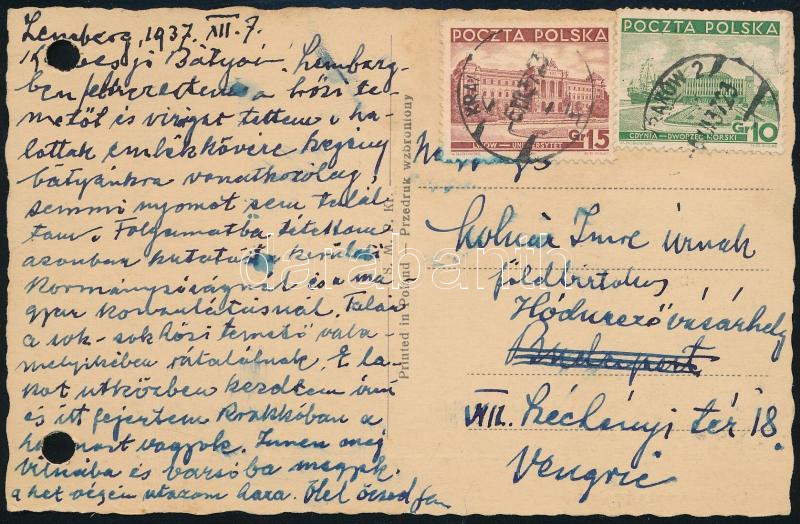 Lemberg, 1937. XII. 7.
Bátyái. Lemberg-
ben a hősi te-
metőt és virágot tettem a ha-
lottak emlékkövére. Szegény
bátyánkra vonatkozólag,
semmi nyomot sem talál-
tam. Folyamatba tétettem
azonban kutatást a kerületi
kormányzóságnál és a ma-
gyar konzulátusnál. Talán
a sok-sok hősi temető vala-
melyikében rátalálnak. E la-
pot útközben kezdtem írni
és itt fejeztem Krakkóban a
hol most vagyok. Innen még
Vilnába és Varsóba megyek.
a hét végén utazom haza. Ölel öcséd
POCZTA POLSKA
LWÓW — UNIWERSYTET
Gr 15
POCZTA POLSKA
GDYNIA — DWORZEC MORSKI
Gr 10
KRAKÓW 2
Printed in Poland Przedruk wzbroniony
S. M. P. Kr.
Imre úrnak
földbirtokos
Hódmezővásárhely
Budapest
VIII. Széchényi tér 18.
Vengrie
darabanth